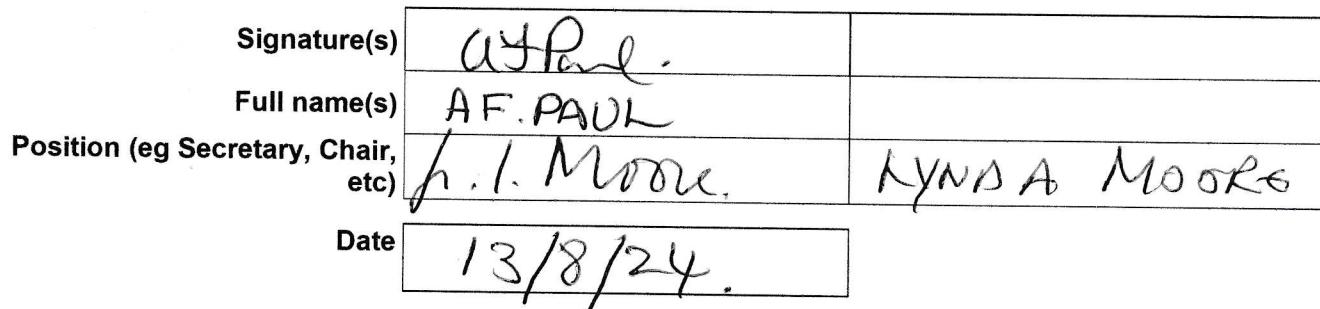 Signature(s) AFPaul.
Full name(s) A F. PAUL
Position (eg Secretary, Chair,
etc) L. I. Moore. LYNDA MOORE
Date 13/8/24.